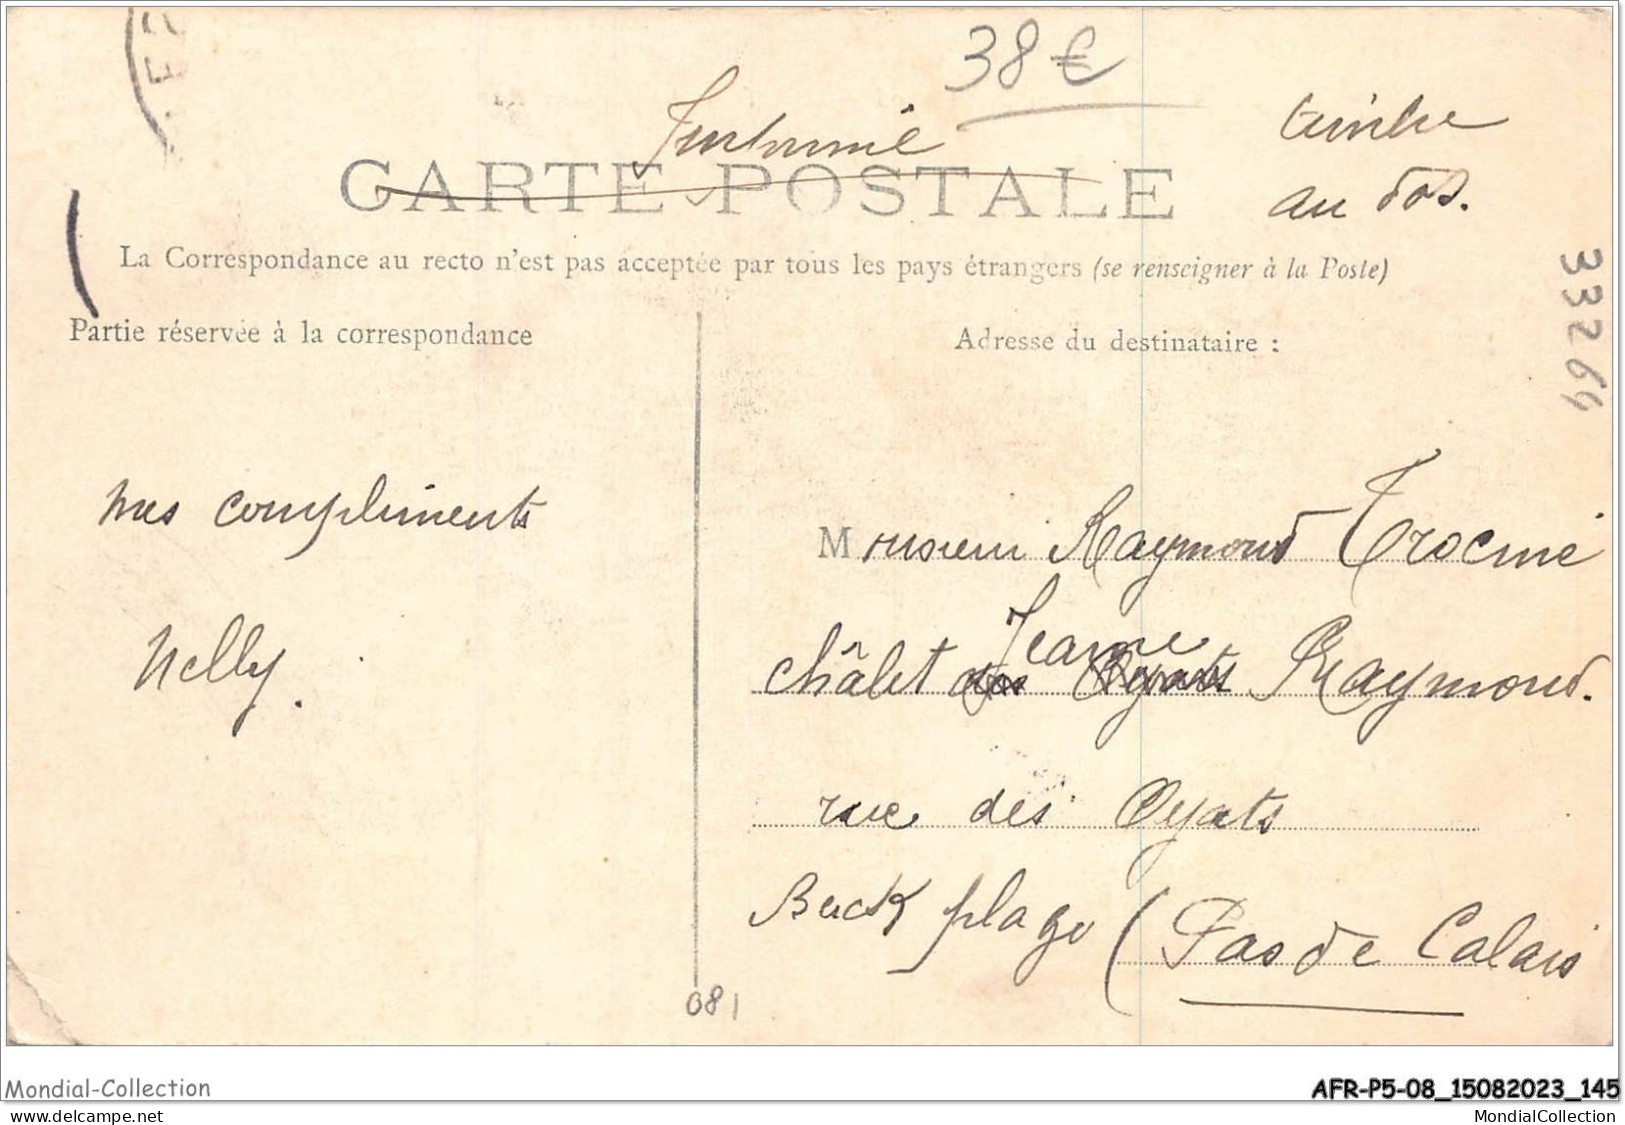 38 €
timbre
au dos.
CARTE POSTALE
La Correspondance au recto n'est pas acceptée par tous les pays étrangers (se renseigner à la Poste)
33264
Partie réservée à la correspondance
Adresse du destinataire :
mes compliments
Nelly.
Monsieur Raymond Trocmé
châlet des Oyats Jeanne Raymond.
rue des Oyats
Berck plage (Pas de Calais
081
Mondial-Collection
AFR-P5-08_15082023_145
www.delcampe.net
MondialCollection